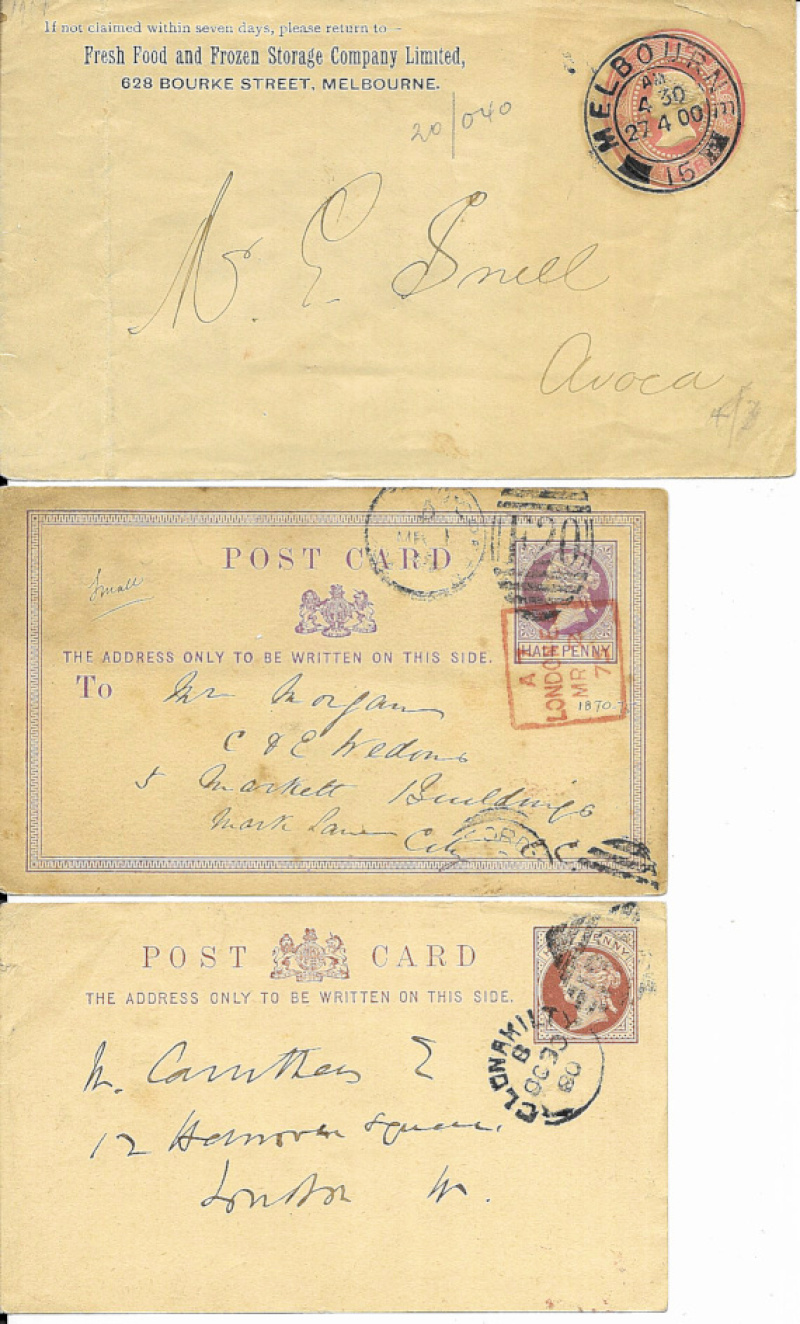 If not claimed within seven days, please return to—
Fresh Food and Frozen Storage Company Limited,
628 BOURKE STREET, MELBOURNE.
20/040
MELBOURNE
AM
4 30
27 4 00
15
Mr E Snell
Avoca
4/3
POST CARD
MR 1
F20
Small
THE ADDRESS ONLY TO BE WRITTEN ON THIS SIDE.
HALFPENNY
LONDON
MR
7
1870
To Mr Morgan
C & E Wedons
5 Markett Buildings
Mark Lane
City
E C
POST CARD
THE ADDRESS ONLY TO BE WRITTEN ON THIS SIDE.
CLONAKILTY
B
OC 30
80
M. Carruthers E
12 Hanover Square,
London W.